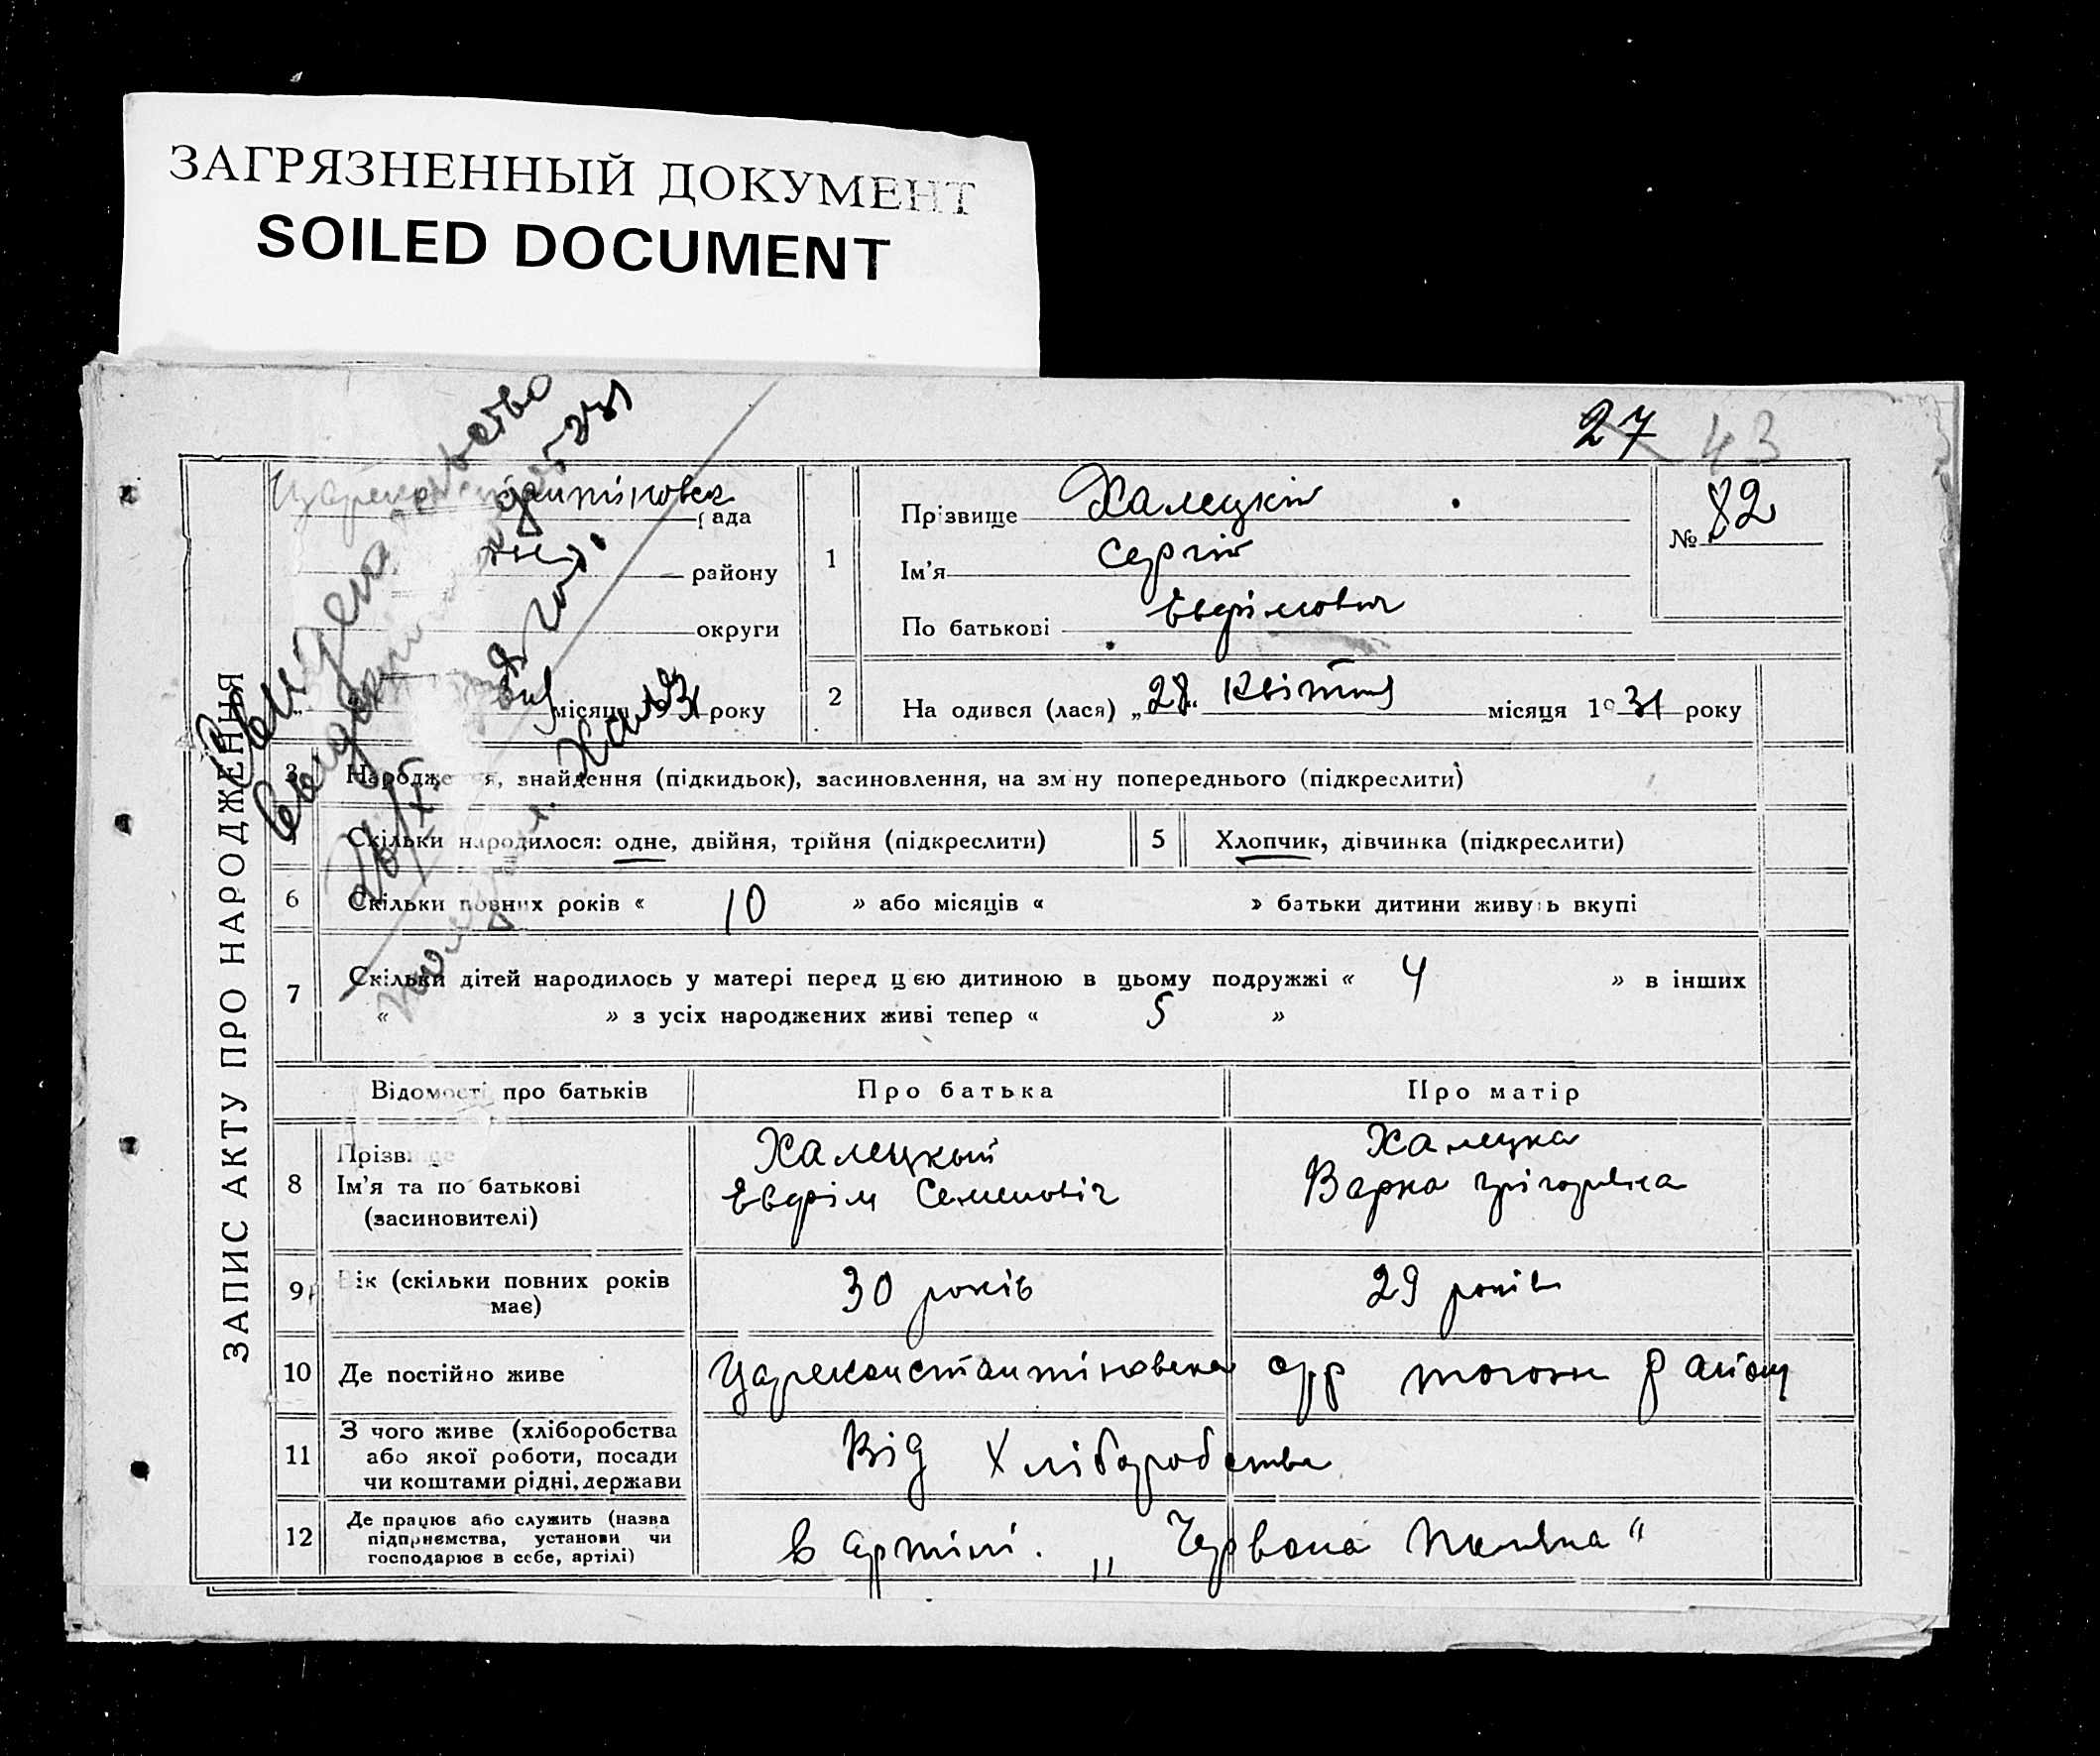 ЗАГРЯЗНЕННЫЙ ДОКУМЕНТ
SOILED DOCUMENT
27 43
ЗАПИС АКТУ ПРО НАРОДЖЕННЯ
рада
району
округи
місяця 1931 року
1
Прізвище Халецкій
Ім'я Сергій
По батькові Евфімович
№ 82
2
На одився (лася) „28“ Квітня місяця 1931 року
3 Народження, знайдення (підкидьок), засиновлення, на зміну попереднього (підкреслити)
Скільки народилося: одне, двійня, трійня (підкреслити)
5 Хлопчик, дівчинка (підкреслити)
6 Скільки повних років « 10 » або місяців « » батьки дитини живуть вкупі
7 Скільки дітей народилось у матері перед цією дитиною в цьому подружжі « 4 » в інших
« » з усіх народжених живі тепер « 5 »
Відомості про батьків Про батька Про матір
8 Прізвище
Ім'я та по батькові
(засиновителі)
Халецкий
Евфім Семенович
Халецка
Варка Грігорівна
9 Вік (скільки повних років
має)
30 років 29 років
10 Де постійно живе Цареконстантіновска с/р того ж району
11 З чого живе (хліборобства
або якої роботи, посади
чи коштами рідні, держави
Від Хліборобства
12 Де працює або служить (назва
підприємства, установи чи
господарює в себе, артілі)
в артілі. „Червона Поляна“